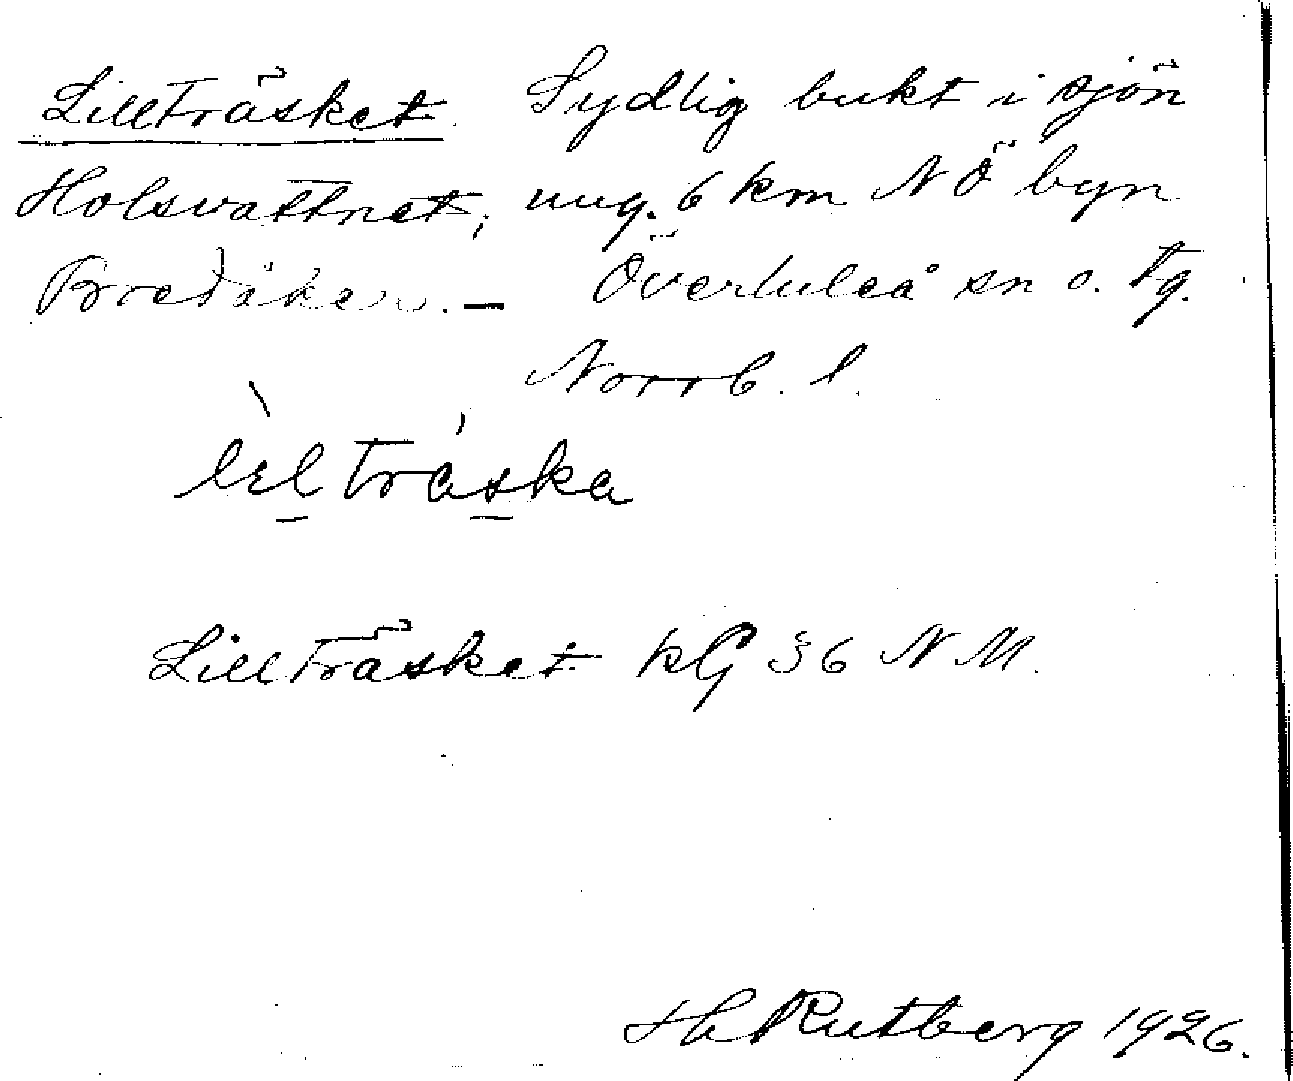 Lillträsket. Sydlig bukt i sjön
Holsvattnet, ung. 6 km NÖ byn
Bredåker. — Överluleå sn o. tg.
Norrb. l.
Lillträsket kG 36 N M.
Rutberg 1926.